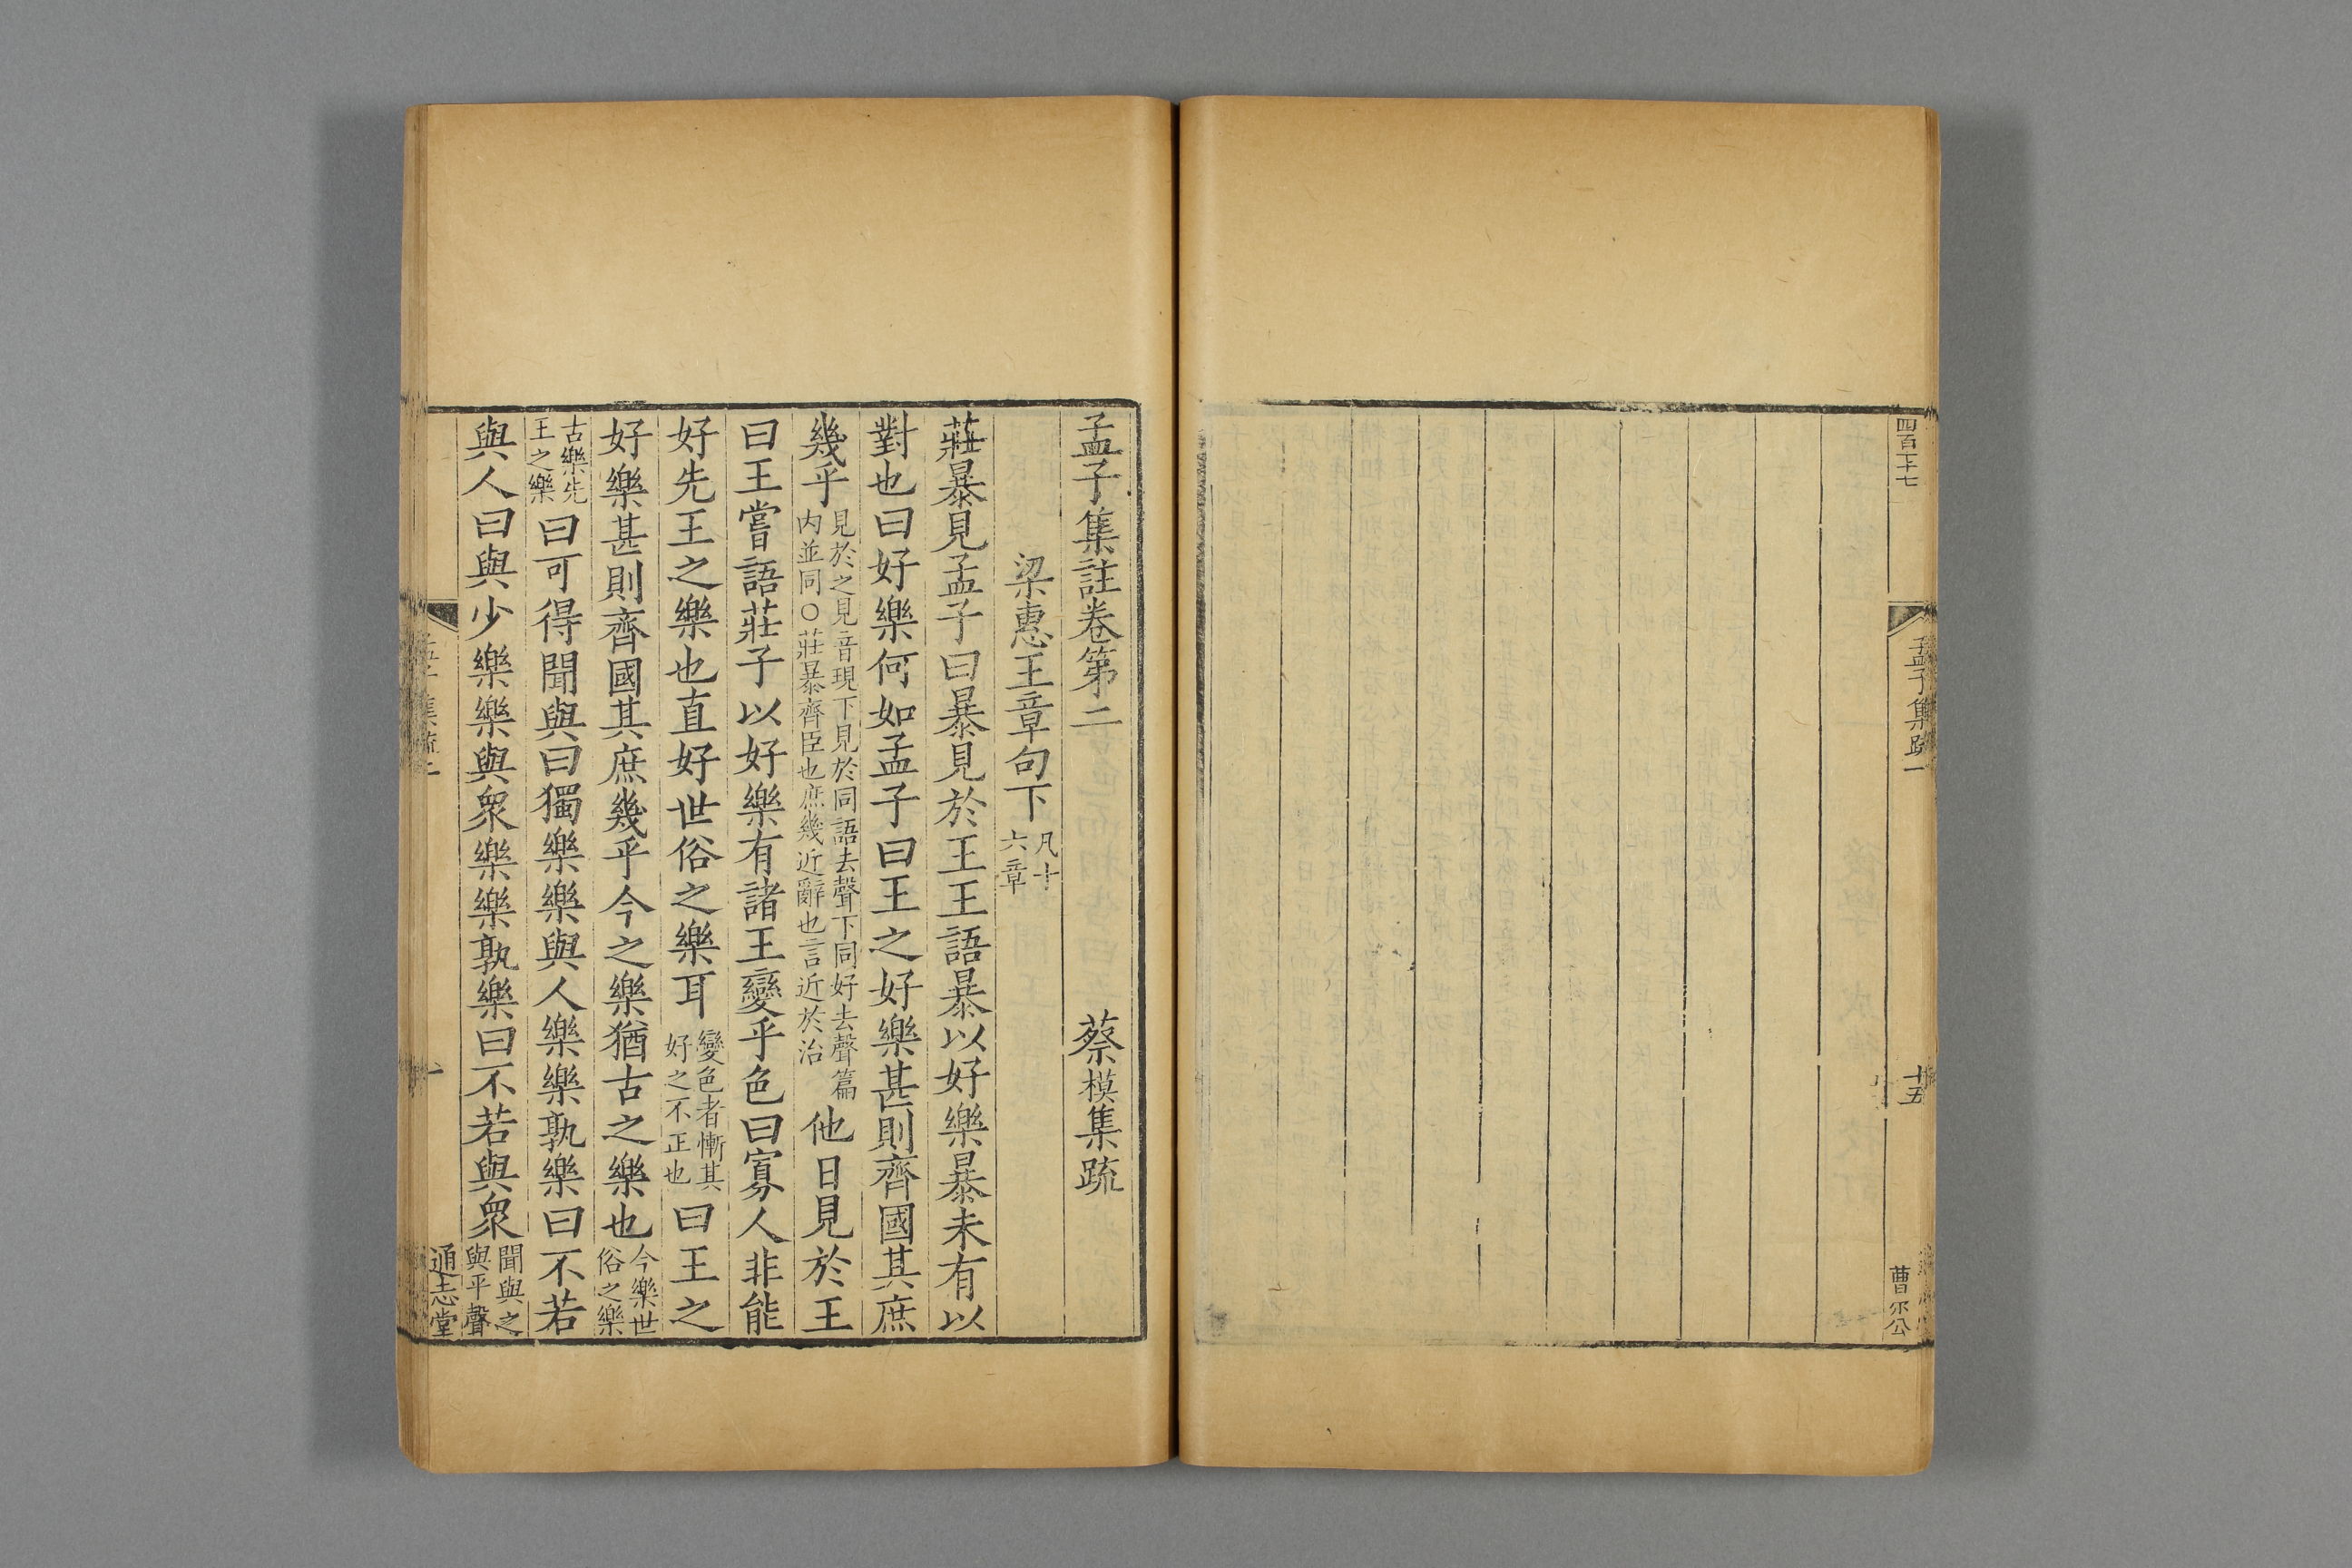 四百十七
孟子集疏一
十五
曹尔公
孟子集註卷第二
蔡模集疏
梁惠王章句下凡十六章
莊暴見孟子曰暴見於王王語暴以好樂暴未有以
對也曰好樂何如孟子曰王之好樂甚則齊國其庶
幾乎見於之見音現下見於同語去聲下同好去聲篇内並同○莊暴齊臣也庶幾近辭也言近於治他日見於王
曰王嘗語莊子以好樂有諸王變乎色曰寡人非能
好先王之樂也直好世俗之樂耳變色者慚其好之不正也曰王之
好樂甚則齊國其庶幾乎今之樂猶古之樂也今樂世俗之樂
古樂先王之樂曰可得聞與曰獨樂樂與人樂樂孰樂曰不若
與人曰與少樂樂與衆樂樂孰樂曰不若與衆聞與之與平聲
孟子集疏二
一
通志堂